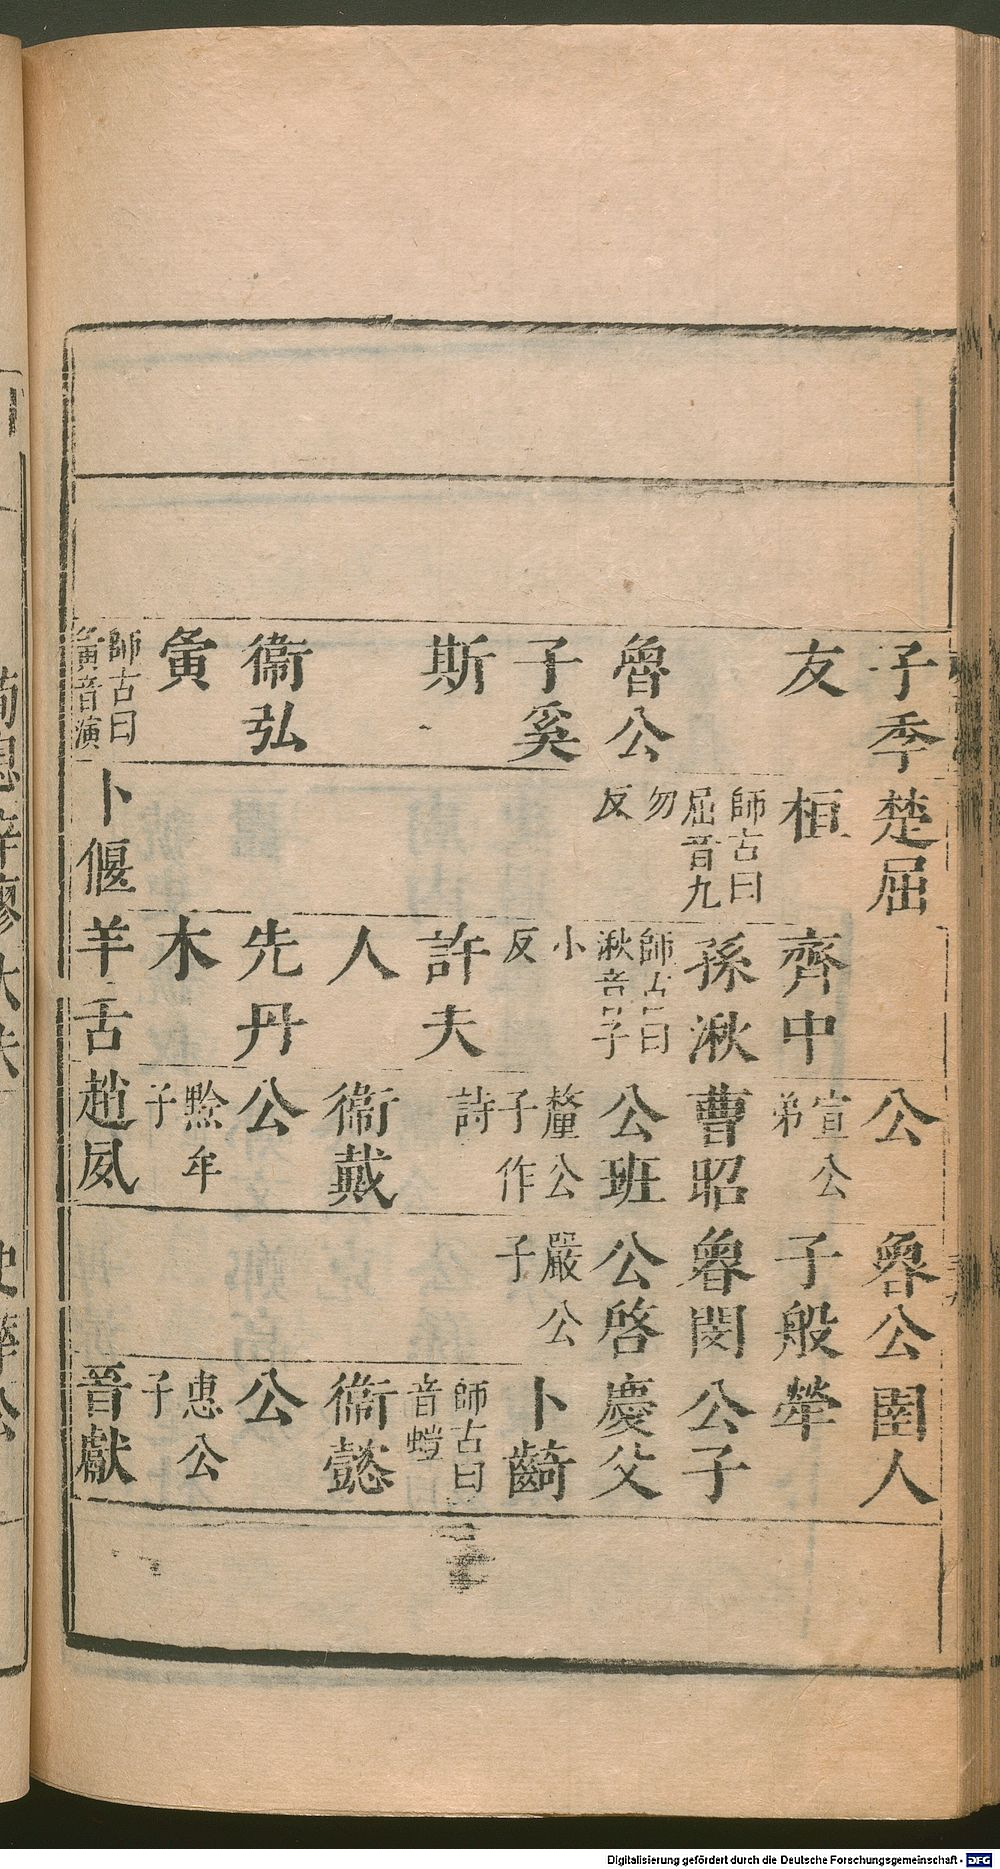 子季 楚屈 公 魯公 圉人
友 桓 齊中 宣公弟 子般 犖
師古曰屈音九 孫湫 曹昭 魯閔 公子
魯公 勿反 師古曰湫音子 公班 公啓 慶父
子奚 小反 釐公子作 嚴公子 卜齮
斯 許夫 詩 師古曰音螘
人 衞戴 衞懿
衞弘 先丹 公 公
夤 木 黔牟子 惠公子
師古曰夤音演 卜偃 羊舌 趙夙 晉獻
Digitalisierung gefördert durch die Deutsche Forschungsgemeinschaft - DFG